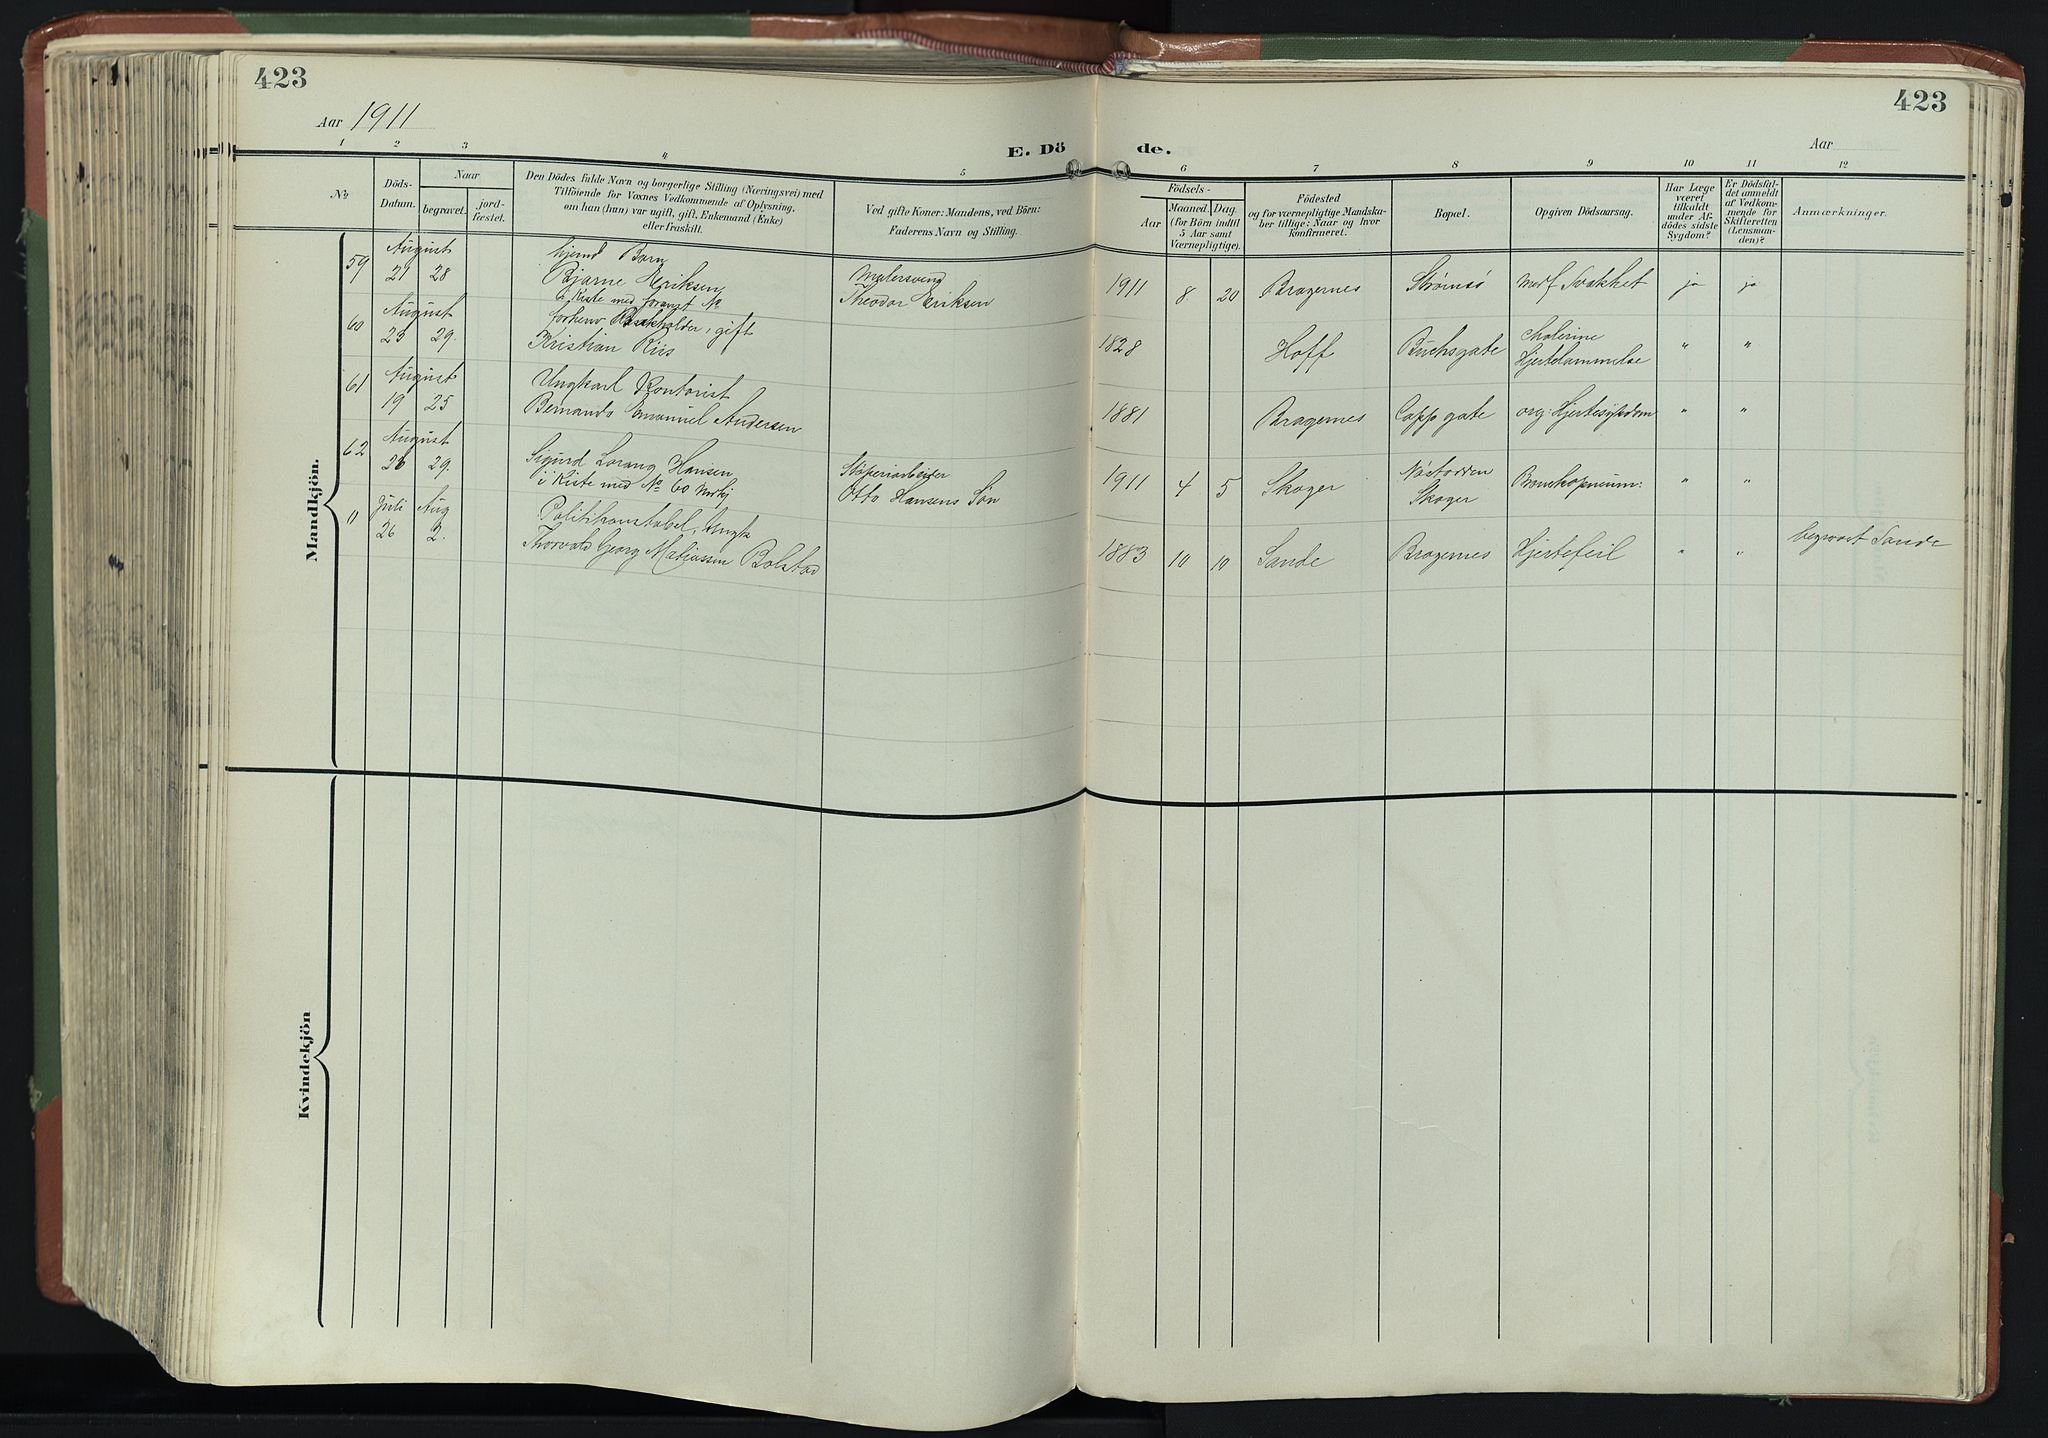 423
423
Aar 1911
Aar
E. Dö de.
1 2 3 4 5 6 7 8 9 10 11 12
No
Döds-
Datum.
Naar
begravet.
jord-
fæstet.
Den Dödes fulde Navn og borgerlige Stilling (Næringsvei) med
Tilföiende for Voxnes Vedkommende af Oplysning,
om han (hun) var ugift, gift, Enkemand (Enke)
eller fraskilt.
Ved gifte Koner: Mandens, ved Börn:
Faderens Navn og Stilling.
Födsels-
Aar
Maaned.
Dag.
(for Börn indtil
5 Aar samt
Værnepligtige).
Födested
og for værnepligtige Mandska-
ber tillige: Naar og hvor
konfirmeret.
Bopæl.
Opgiven Dödsaarsag.
Har Læge
været
tilkaldt
under Af-
dödes sidste
Sygdom?
Er Dödsfal-
det anmeldt
af Vedkom-
mende for
Skifteretten
(Lensman-
den)?
Anmærkninger.
Mandkjön.
August hjemd Barn
59 21 28 Bjarne Eriksen Malersvend 1911 8 20 Bragernes Strømsø Medf. Svakhet ja ja
i Kiste med No Theodor Eriksen
August forhenv , gift
60 23 29. Kristian Riis 1828 Hoff Buchsgate Cholerine " "
Hjertelammelse
61 August Ungkarl Kontorist
19 25 Bernando Emanuel Andersen 1881 Bragernes Cappgate org: Hjertesygdom " "
62 August Sigurd Lorang Hansen Støperiarbeider
23 29. i Kiste med No 60 Otto Hansens Søn 1911 4 5 Skoger Nøstodden Bronchopneum: " "
Skoger
11 Juli Aug Politikonstabel, Ungk
26 2. Thorvald Georg Matiassen Bolstad 1883 10 10 Sande Bragernes Hjertefeil " " begravet Sande
Kvindekjön